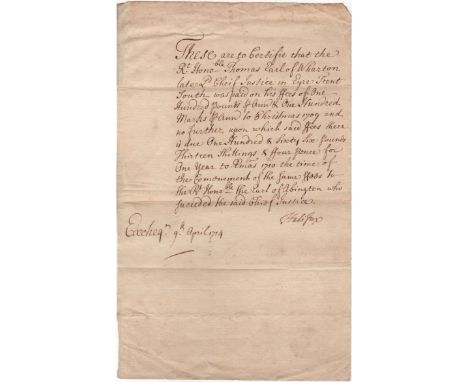 These are to Certifie that the
Rt. Honoble. Thomas Earl of Wharton
late Ld. Cheif Justice in Eyre Trent
South was paid on his ffees of One
Hundred Pounds P Ann & One Hundred
Marks P Ann to Christmas 1709 and
no further, upon which said ffees there
is due One Hundred & Sixty Six Pounds
Thirteen Shillings & ffour Pence for
One Year to Xmas 1710 the time of
the Comencement of the same ffees to
the Rt. Honoble. the Earl of Abington who
succeded the said Cheif Justice.
Halifax
Excheqr. 9th April 1714